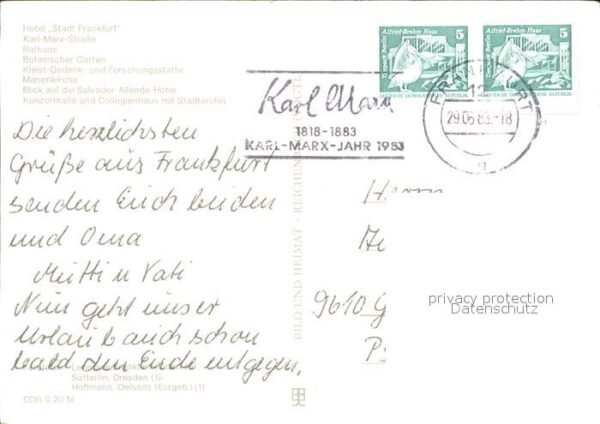 Hotel „Stadt Frankfurt"
Karl-Marx-Straße
Rathaus
Botanischer Garten
Kleist-Gedenk- und Forschungsstätte
Marienkirche
Blick auf die Salvador-Allende-Höhe
Konzerthalle und Collegienhaus mit Stadtarchiv
Alfred-Brehm-Haus 5
Tierpark Berlin
Alfred-Brehm-Haus 5
Tierpark Berlin
Karl Marx
1818-1883
KARL-MARX-JAHR 1983
FRANKFURT
12
29.06.83.-18
g
Die herzlichsten
Grüße aus Frankfurt
senden Euch beiden
und Oma
Mutti u Vati
Nun geht unser
Urlaub auch schon
bald dem Ende entgegen.
BILD UND HEIMAT · REICHENBACH
9610 G
privacy protection
Datenschutz
Sütterlin, Dresden (1)
Hoffmann, Oelsnitz (Erzgeb.) (1)
DDR 0,20 M